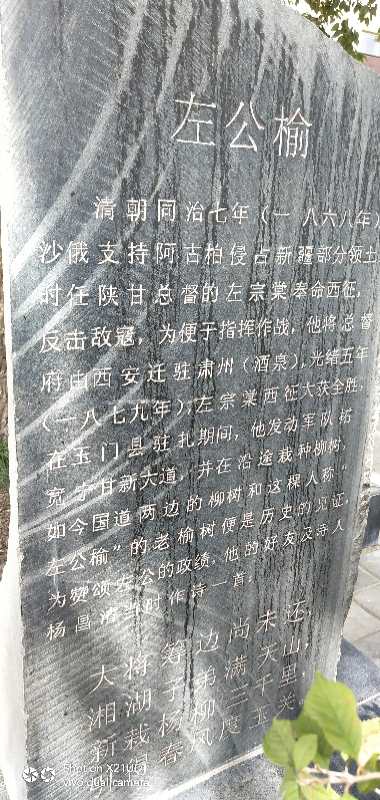 左公榆
清朝同治七年（一八六八年）
沙俄支持阿古柏侵占新疆部分领土
时任陕甘总督的左宗棠奉命西征，
反击敌寇，为便于指挥作战，他将总督
府由西安迁驻肃州（酒泉），光绪五年
（一八七九年），左宗棠西征大获全胜，
在玉门县驻扎期间，他发动军队拓
宽宁甘新大道，并在沿途栽种柳树，
如今国道两边的柳树和这棵人称“
左公榆”的老榆树便是历史的见证，
为赞颂左公的政绩，他的好友及诗人
杨昌浩当时作诗一首，
大将筹边尚未还，
湘湖子弟满天山，
新栽杨柳三千里，
春风度玉关
Shot on X21UD
Vivo dual camera